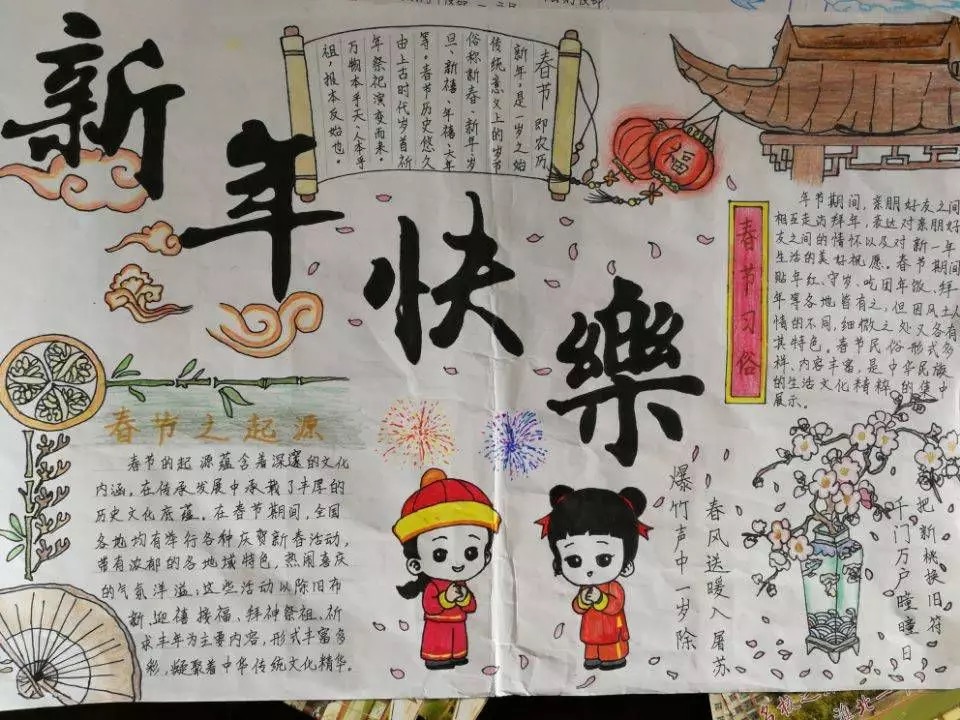 新年快樂
春节即农历
新年，是一岁之始
传统意义上的岁节
俗称新春、新年、岁
旦、新禧、年禧、大年
等。春节历史悠久
由上古时代岁首祈
年祭祀演变而来。
万物本乎天、人本乎
祖，报本反始也。
福
春节习俗
年节期间，亲朋好友之间
相互走访拜年，表达对亲朋好
友之间的情怀以及对新一年
生活的美好祝愿。春节期间
贴年红、守岁、吃团年饭、拜
年等各地皆有之，但因风土人
情的不同，细微之处又各有
其特色。春节民俗形式多
样、内容丰富，是中华民族
的生活文化精粹的集中
展示。
春节之起源
春节的起源蕴含着深邃的文化
内涵。在传承发展中承载了丰厚的
历史文化底蕴。在春节期间，全国
各地均有举行各种庆贺新春活动，
带有浓郁的各地域特色，热闹喜庆
的气氛洋溢，这些活动以除旧布
新、迎禧接福、拜神祭祖、祈
求丰年为主要内容，形式丰富多
彩，凝聚着中华传统文化精华。
爆竹声中一岁除
春风送暖入屠苏
千门万户曈曈日
把新桃换旧符